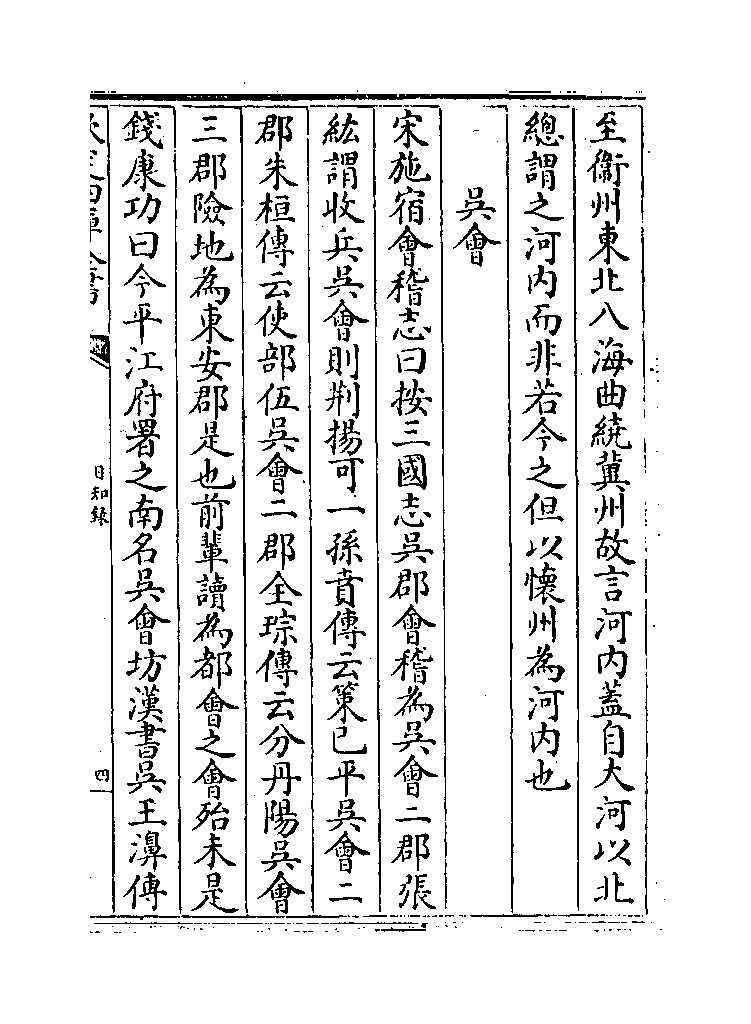 至衞州東北入海曲繞冀州故言河内蓋自大河以北
總謂之河内而非若今之但以懷州為河内也
吳會
宋施宿會稽志曰按三國志吳郡會稽為吳會二郡張
紘謂收兵吳會則荆揚可一孫賁傳云策已平吳會二
郡朱桓傳云使部伍吳會二郡全琮傳云分丹陽吳會
三郡險地為東安郡是也前輩讀為都會之會殆未是
錢康功曰今平江府署之南名吳會坊漢書吳王濞傳
欽定四庫全書
日知錄
四